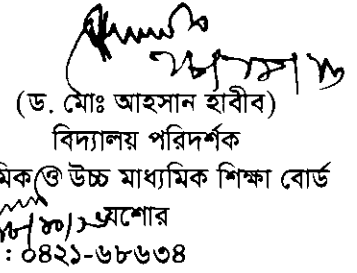 (ড. মোঃ আহসান হাবীব)
বিদ্যালয় পরিদর্শক
মিক ও উচ্চ মাধ্যমিক শিক্ষা বোর্ড
যশোর
: ০৪২১-৬৮৬৩৪